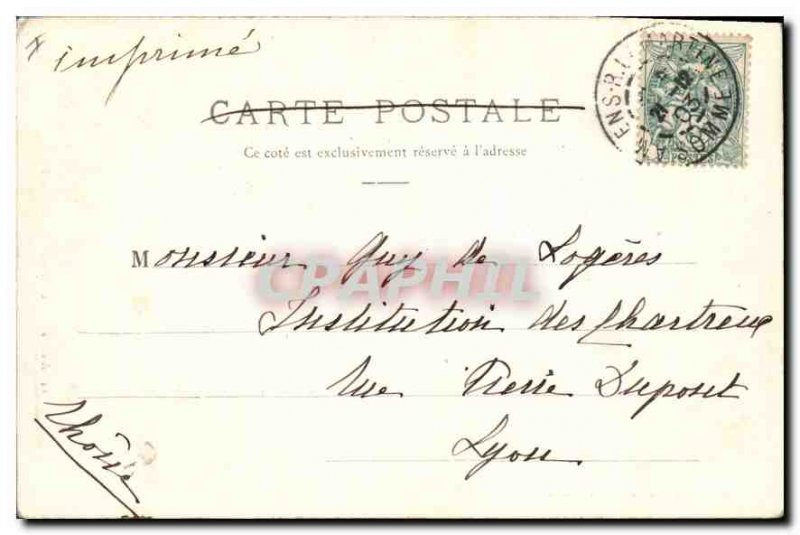 imprimé
CARTE POSTALE
Ce coté est exclusivement réservé à l'adresse
Monsieur Guy de Logères
CPAPHIL
Institution des Chartreux
rue Pierre Dupont
Lyon
Rhône